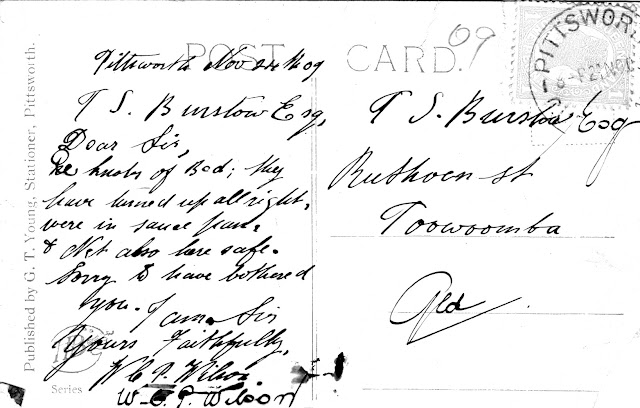 POST CARD.
09
PITTSWOR
Published by G. T. Young, Stationer, Pittsworth.
Pittsworth Nov 24th 09
T. S. Burstow Esq,
Dear Sir,
Re knobs of Bed; they
have turned up all right,
were in sauce pan.
& Net also here safe.
Sorry to have bothered
you. I am Sir
Yours Faithfully,
W. C. P. Wilson
W. C. P. Wilson
Series
T. S. Burstow Esq
Ruthven st
Toowoomba
Qld